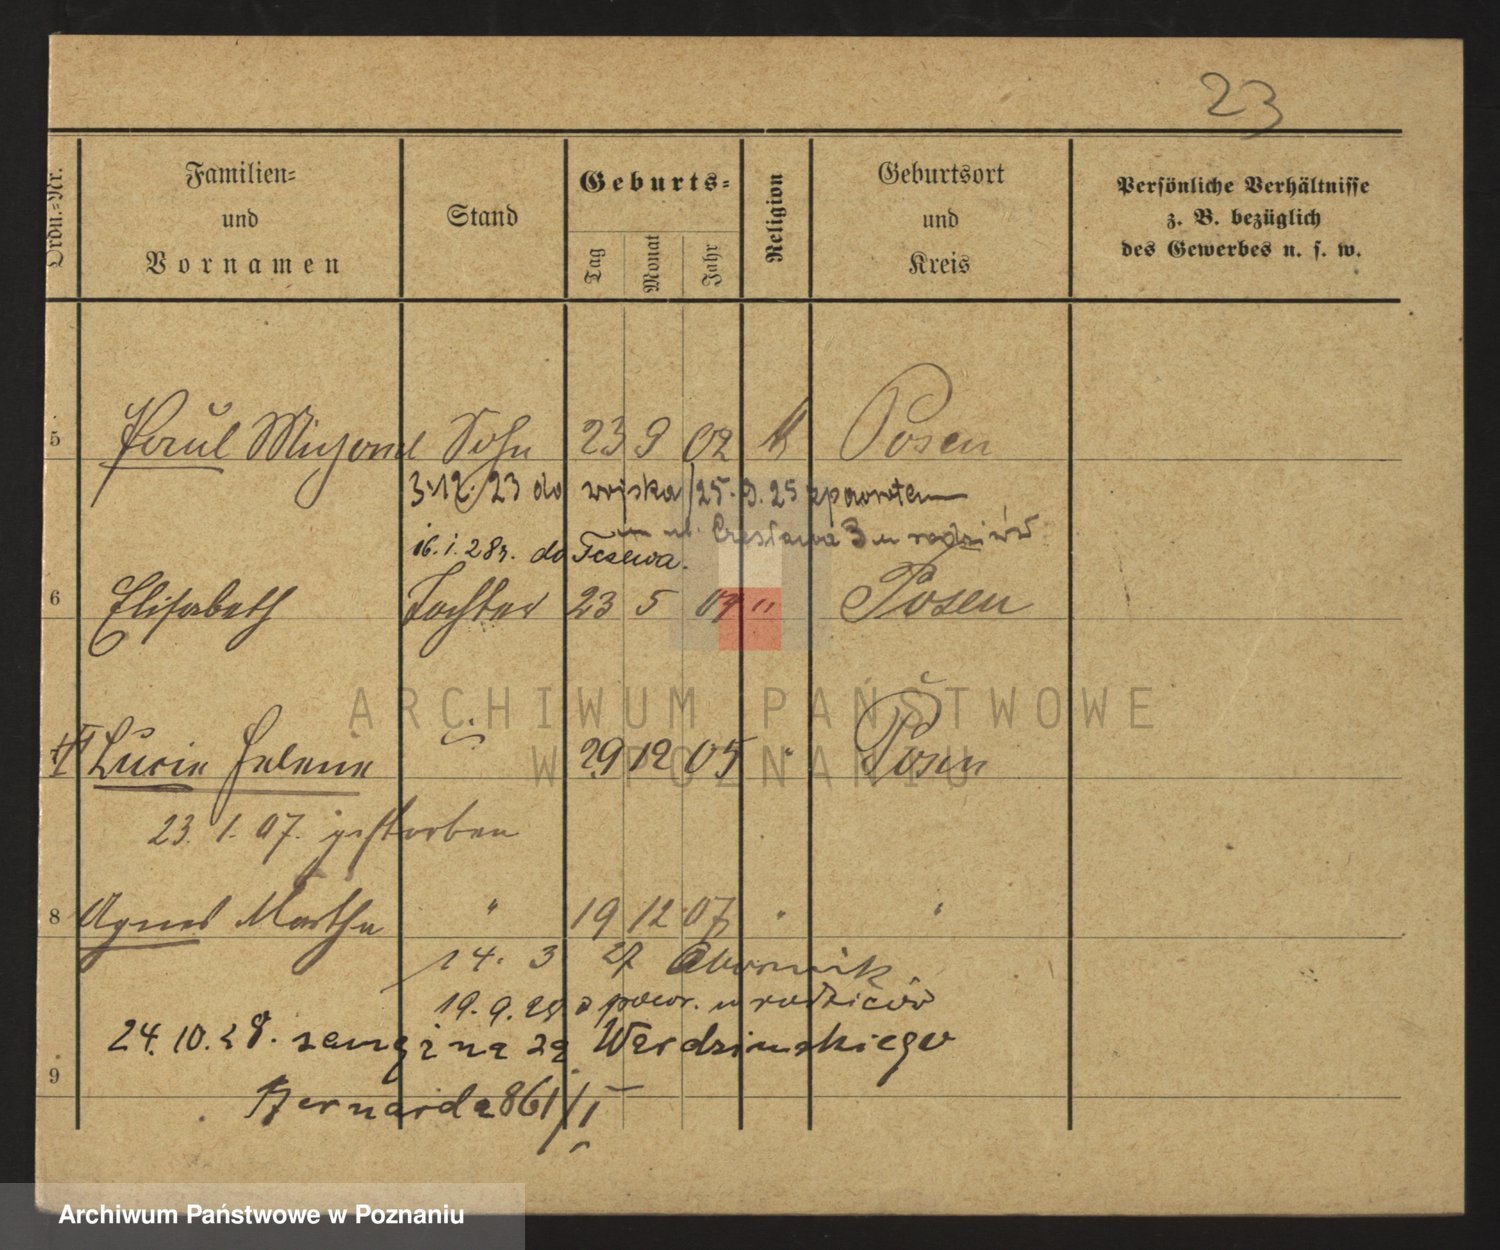 23
Ordn.-Nr.
Familien-
und
Vornamen
Stand
Geburts-
Tag
Monat
Jahr
Religion
Geburtsort
und
Kreis
Persönliche Verhältnisse
z. B. bezüglich
des Gewerbes u. s. w.
5 Paul Sohn 23 9 02 K Posen
3.12.23 do wojska / 25.9.25 z powrotem
ul. Czesława 3 u rodziców
16.1.28r. do Tczewa.
6 Elisabeth Tochter 23 5 04 " Posen
Lucie Helene 29 12 05 " Posen
23.1.07. gestorben
8 Agnes Martha " 19 12 07 " "
14. 3 27 Obornik
19.9.28 z powr. u rodziców
24.10.28. zamężna za Werdzińskiego
9
Bernarda 861/I
ARCHIWUM PAŃSTWOWE
W POZNANIU
Archiwum Państwowe w Poznaniu